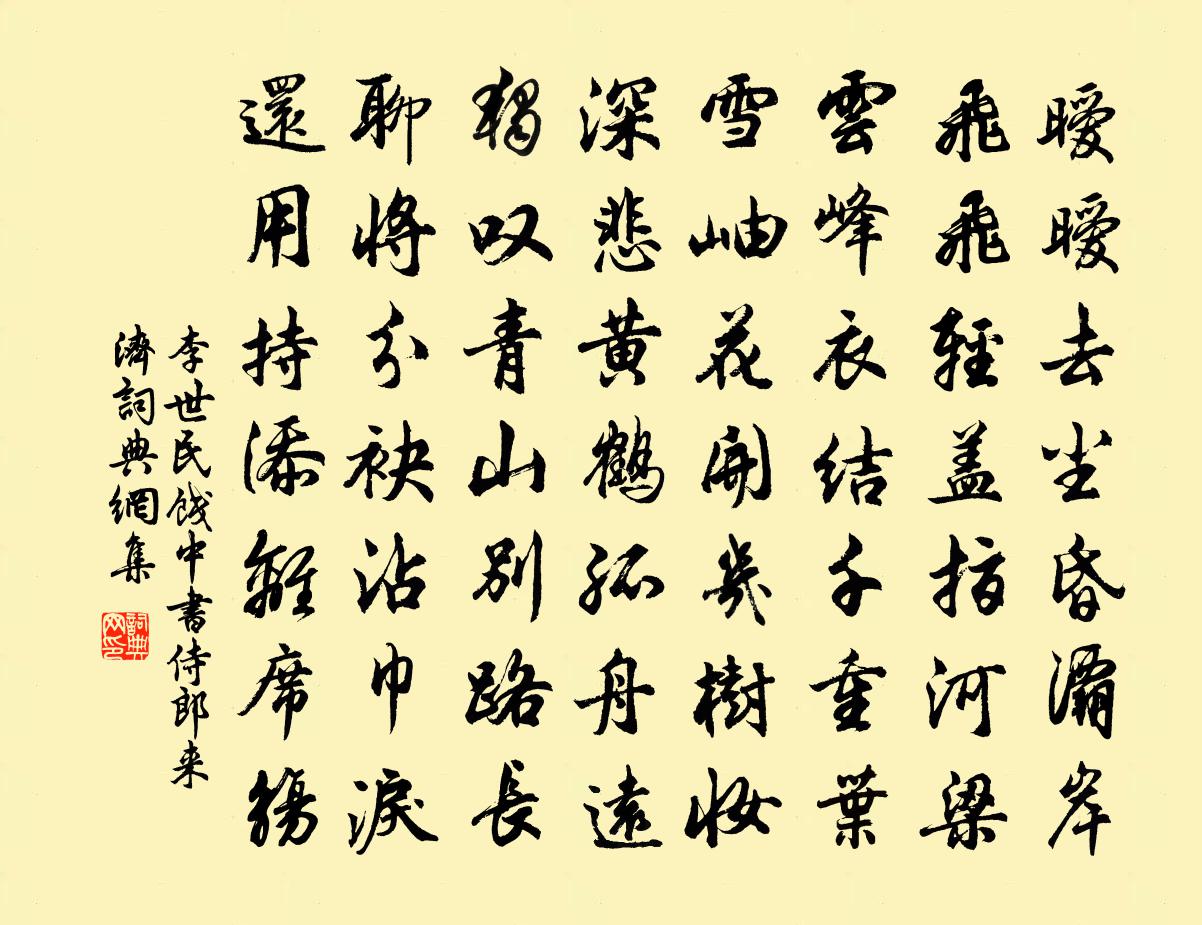 曖曖去尘昏灞岸
飛飛輕盖指河梁
雲峰衣结千重葉
雪岫花開幾樹妆
深悲黄鶴孤舟遠
獨叹青山别路長
聊將分袂沾巾淚
還用持添離席觴
李世民餞中書侍郎来
濟詞典網集
詞典网印